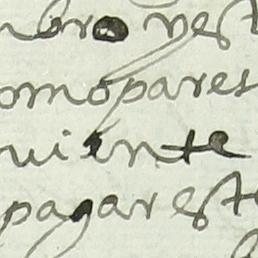 nbro vest
omo pares
uiente
pagar esto